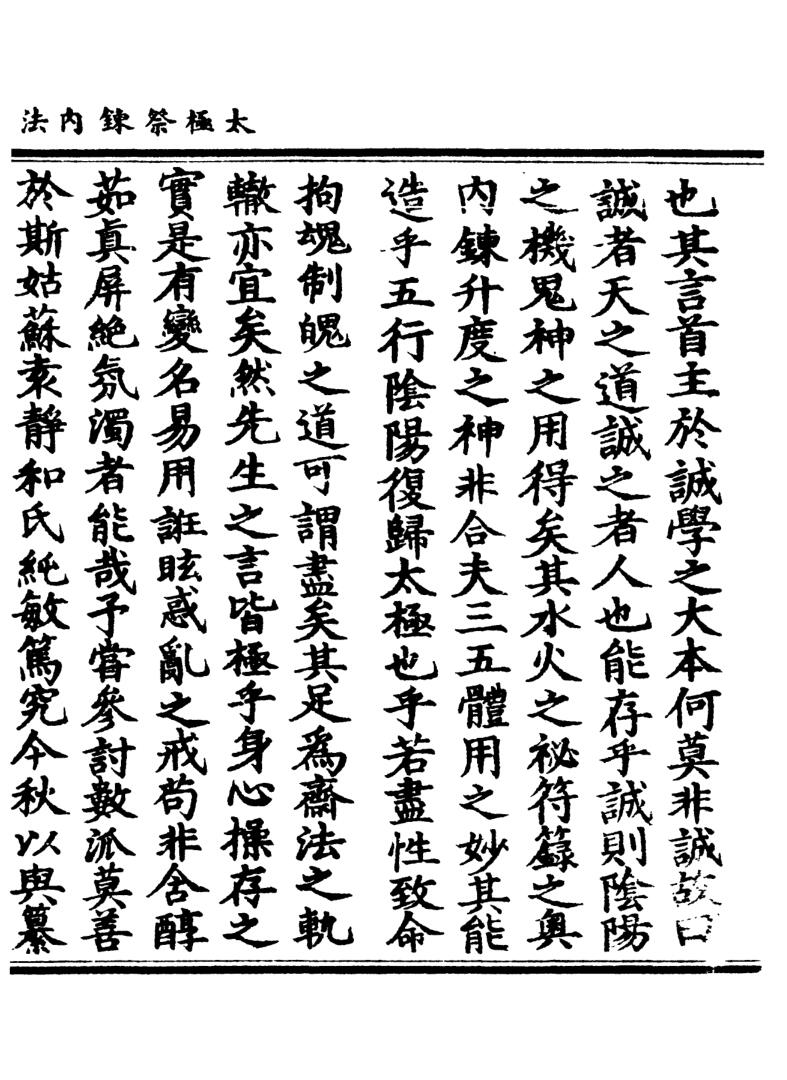 太極祭鍊內法
也其言首主於誠學之大本何莫非誠故曰
誠者天之道誠之者人也能存乎誠則陰陽
之機鬼神之用得矣其水火之祕符籙之奧
內鍊升度之神非合夫三五體用之妙其能
造乎五行陰陽復歸太極也乎若盡性致命
拘魂制魄之道可謂盡矣其足為齋法之軌
轍亦宜矣然先生之言皆極乎身心操存之
實是有變名易用誑眩惑亂之戒苟非含醇
茹真屏絕氛濁者能哉予嘗參討數派莫善
於斯姑蘇袁靜和氏純敏篤究今秋以與纂